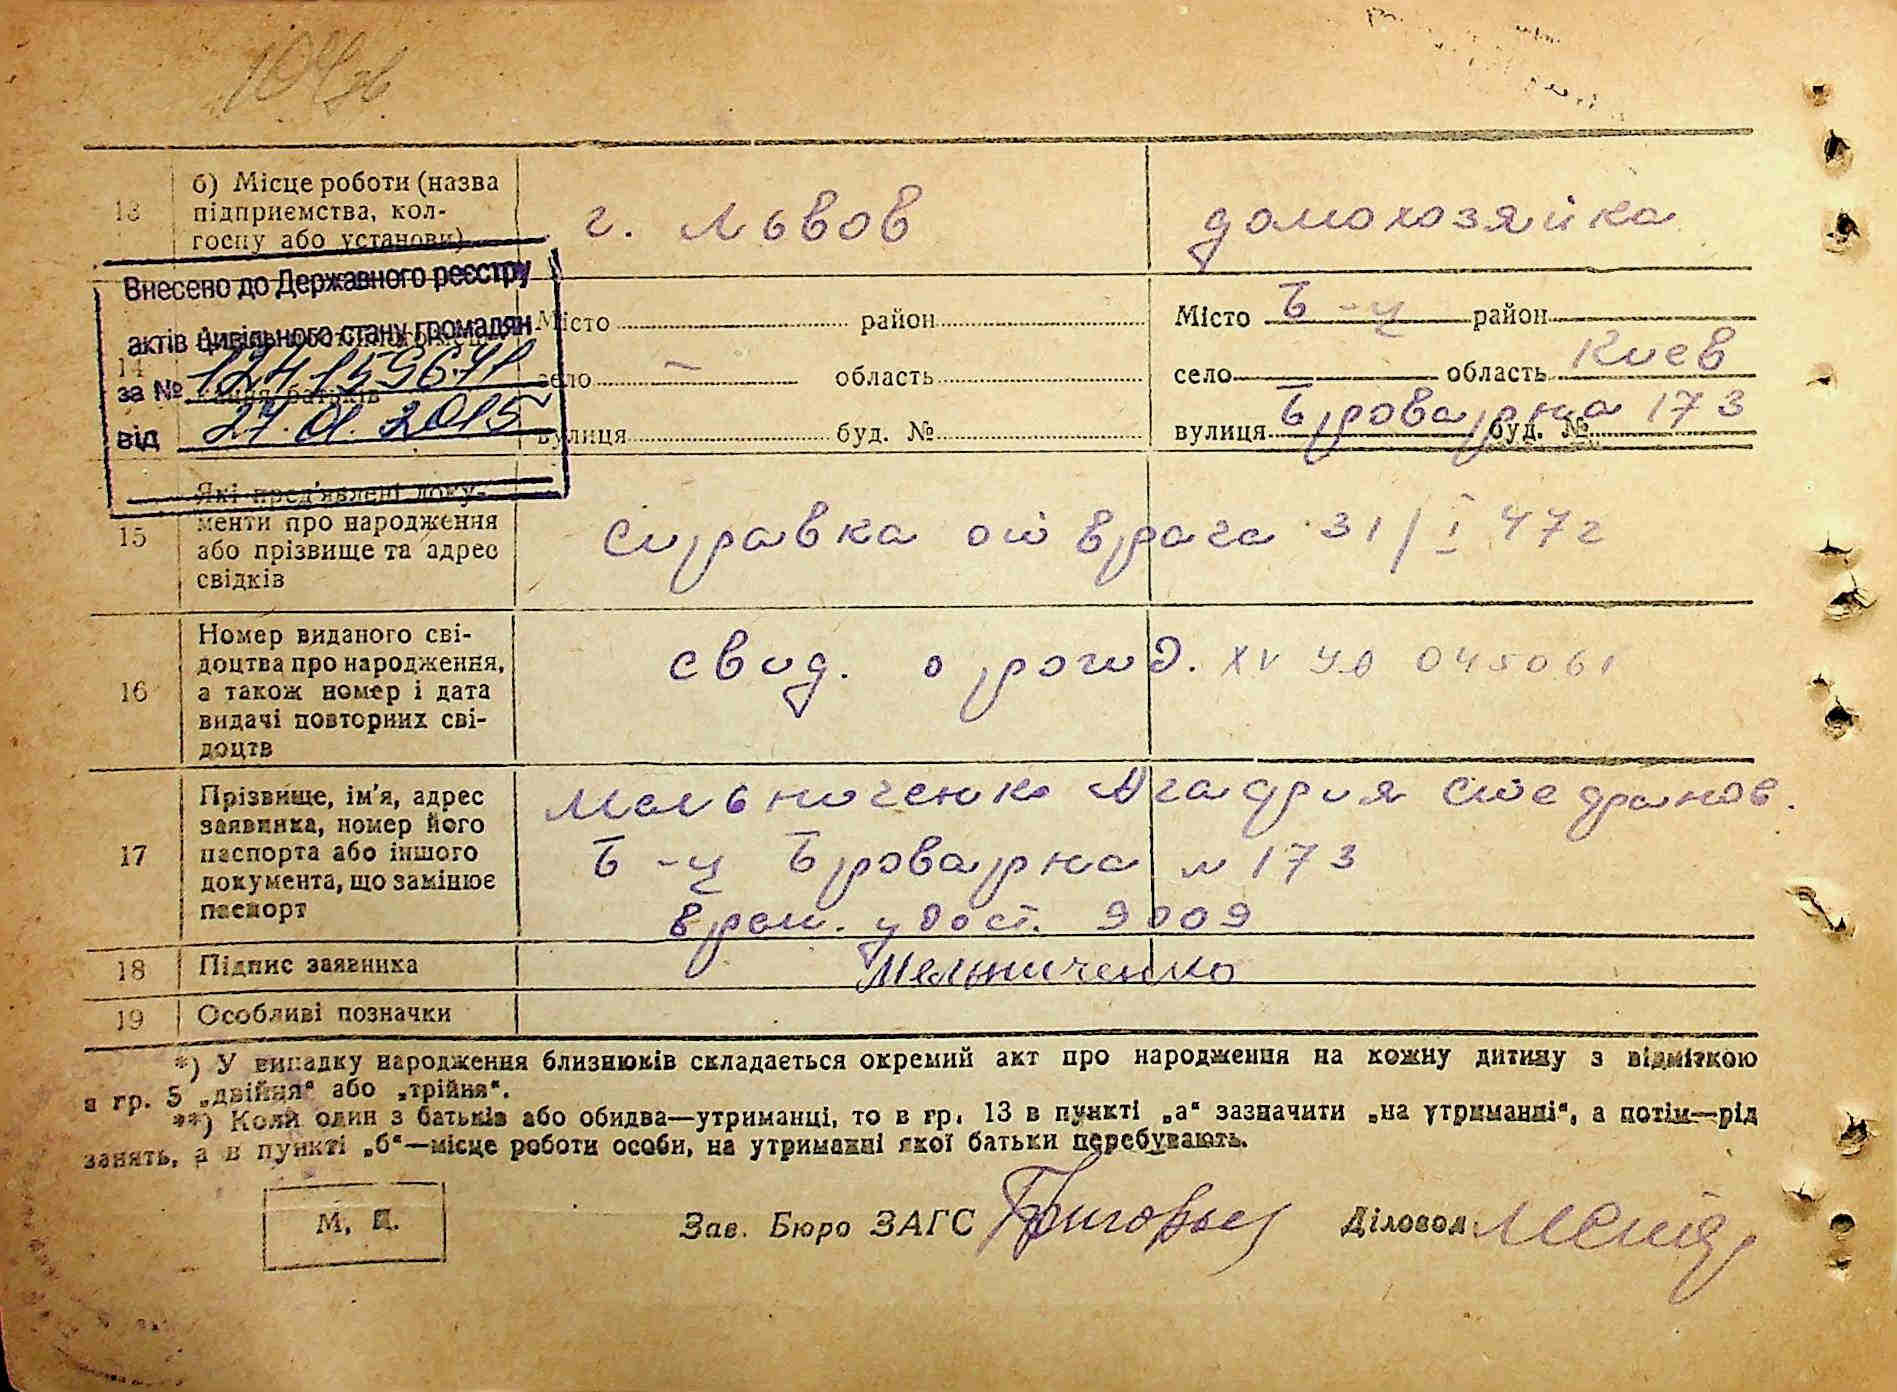 13
б) Місце роботи (назва
підприємства, кол-
госпу або установи)
г. Львов
домохозяйка
Внесено до Державного реєстру
актів цивільного стану громадян
за №
від 27.01.2015
14
Місто район
село — область
вулиця буд. №
Місто Б-ц район
село область Киев
вулиця Броварна буд. № 173
15
Які пред'явлені доку-
менти про народження
або прізвище та адрес
свідків
справка от врача 31/I 47 г
16
Номер виданого сві-
доцтва про народження,
а також номер і дата
видачі повторних сві-
доцтв
свид. о рожд. XV УО 045061
17
Прізвище, ім'я, адрес
заявника, номер його
паспорта або іншого
документа, що замінює
паспорт
Мельниченко
Б-ц Броварна № 173
врем. удост. 9009
18
Підпис заявника
Мельниченко
19
Особливі позначки
*) У випадку народження близнюків складається окремий акт про народження на кожну дитину з відміткою
в гр. 5 „двійня“ або „трійня“.
**) Коли один з батьків або обидва—утриманці, то в гр. 13 в пункті „а“ зазначити „на утриманні“, а потім—рід
занять, а в пункті „б“—місце роботи особи, на утриманні якої батьки перебувають.
М. П.
Зав. Бюро ЗАГС
Діловод